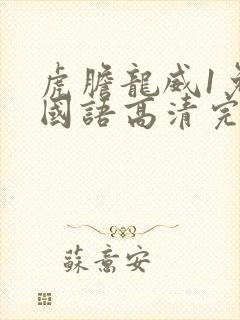 虎膽龍威1免
國語高清完
蘇意安